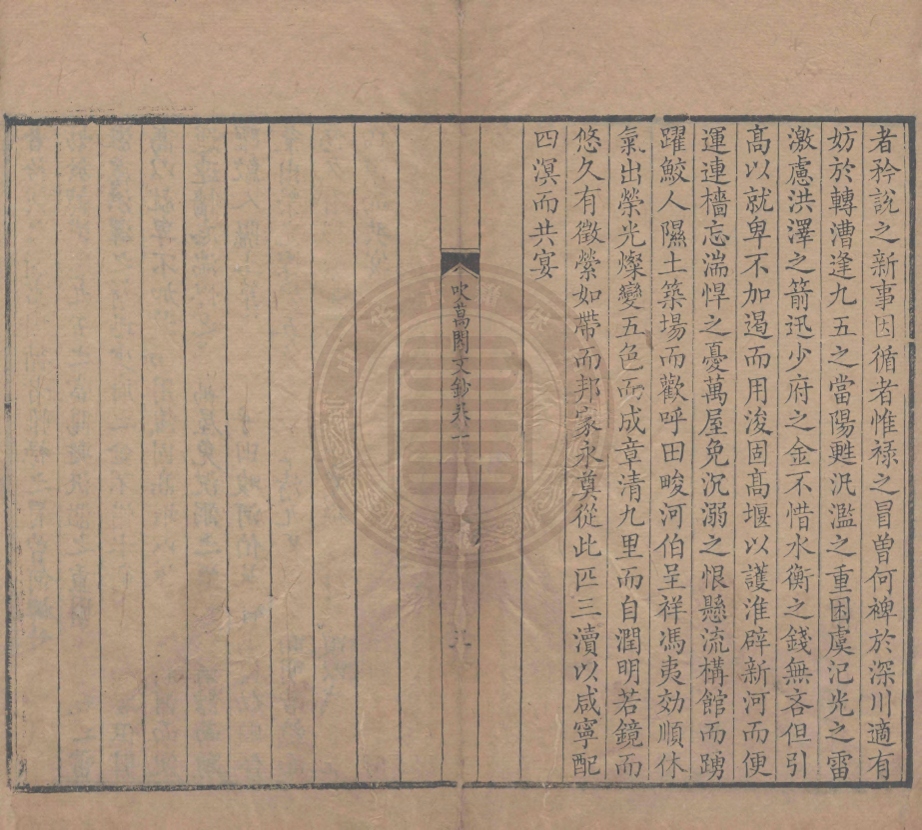 者矜說之新事因循者惟祿之冒曽何裨於深川適有
妨於轉漕逢九五之當陽甦汎濫之重困虞汜光之雷
激慮洪澤之箭迅少府之金不惜水衡之錢無吝但引
高以就卑不加遏而用浚固高堰以護淮辟新河而便
運連檣忘湍悍之憂萬屋免沉溺之恨懸流構館而踴
躍鮫人隰土築場而歡呼田畯河伯呈祥馮夷効順休
氣出榮光燦變五色而成章清九里而自潤明若鏡而
悠久有徵縈如帶而邦家永奠從此匹三瀆以咸寧配
四溟而共宴
吹萬閣文鈔卷一